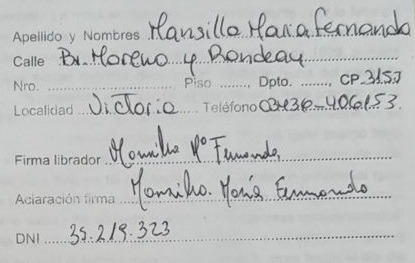 Apellido y Nombres Mansilla Maria Fernanda
Calle Bv. Moreno y Rondeau
Nro. ........ Piso ........, Dpto. ........, CP. 3153
Localidad Victoria Teléfono 03436-406153.
Firma librador Mansilla Mª Fernanda
Aclaración firma Mansilla María Fernanda
DNI 35.219.323